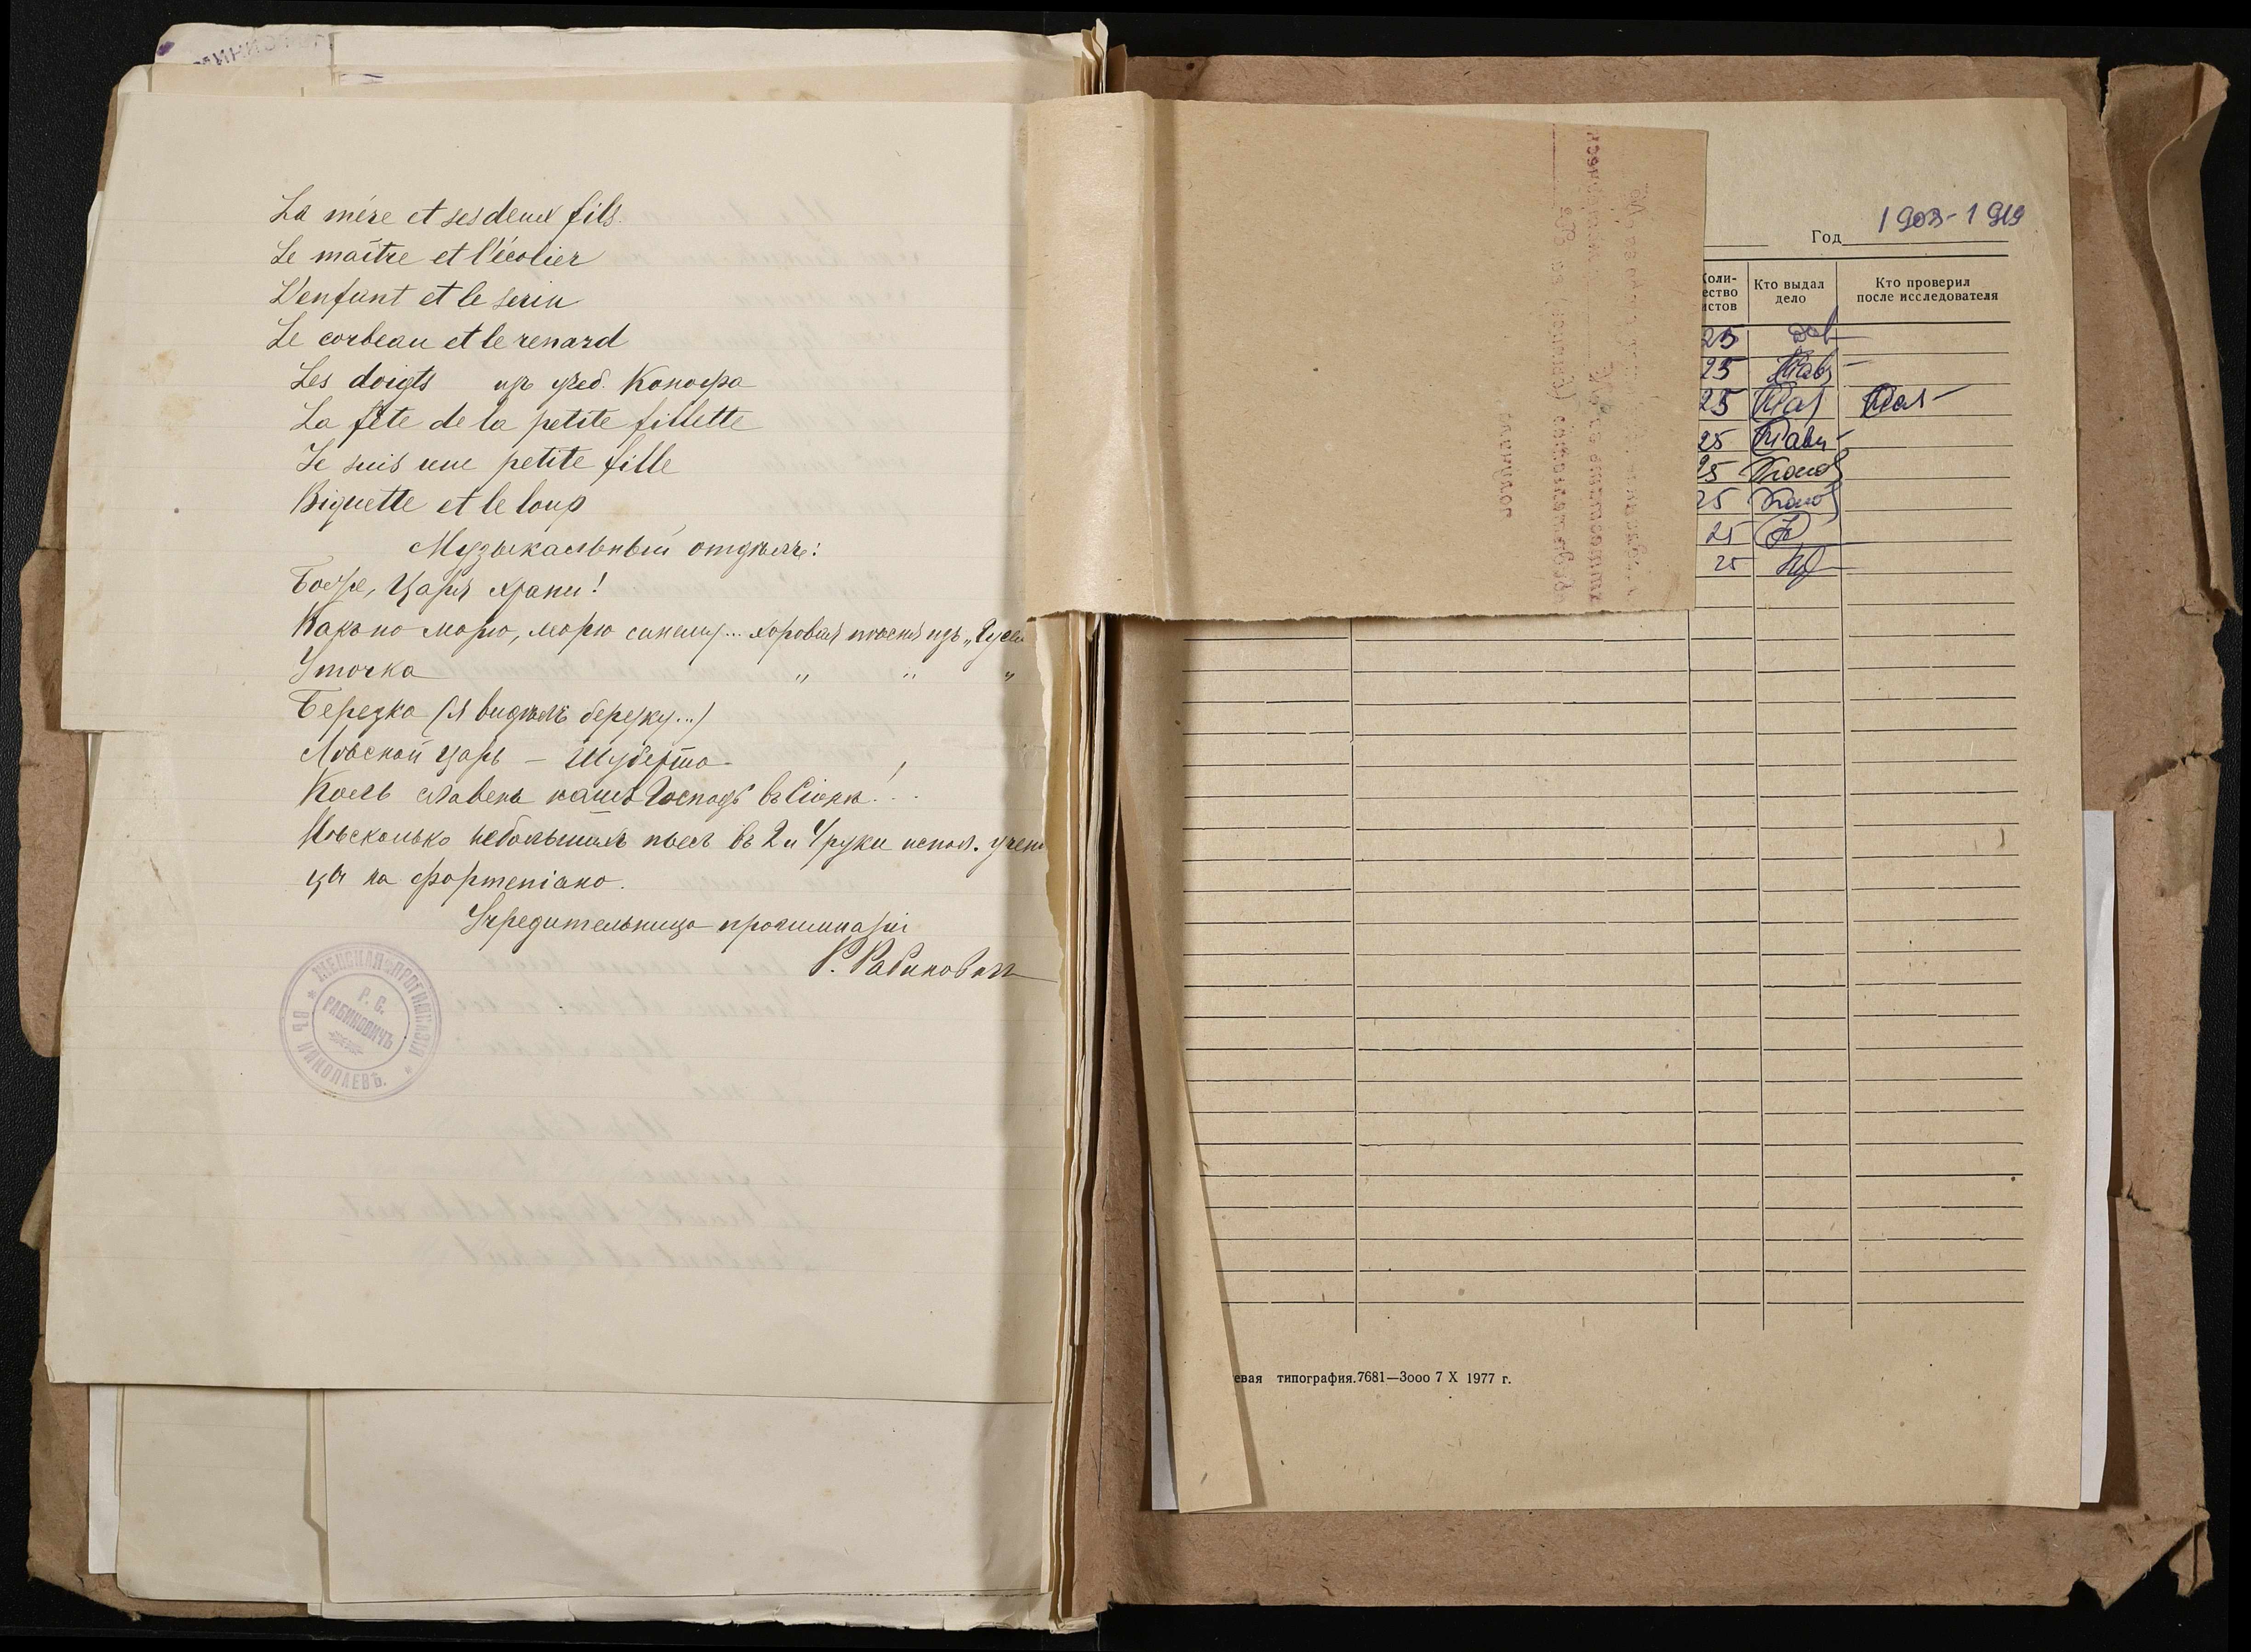 La mére et ses deux fils.
Le maître et l'écolier
L'enfant et le serin
Le corbeau et le renard
Les doigts изъ учеб. Конофа
La fête de la petite fillette
Je suis une petite fille
Biquette et le loup
Музыкальный отдѣлъ:
Боже, Царя храни!
Какъ по морю, морю синему... хоровая пѣсня изъ „Гусел
Уточка " " "
Березка (Я видѣлъ березку...)
Лѣсной царь – Шуберта.
Коль славенъ нашъ Господь въ Сіонѣ!..
Нѣсколько небольшихъ пьесъ въ 2 и 4 руки испол. учени
цы на фортепіано.
Учредительница прогимназіи
Р. Рабиновичъ
ЖЕНСКАЯ ПРОГИМНАЗІЯ
Р. С.
РАБИНОВИЧЪ
НИКОЛАЕВЪ.
Год 1903-1919
Коли-
ество
истов
Кто выдал
дело
Кто проверил
после исследователя
25
25
25
25
25
25
25
25
евая типография.7681—3ооо 7 X 1977 г.